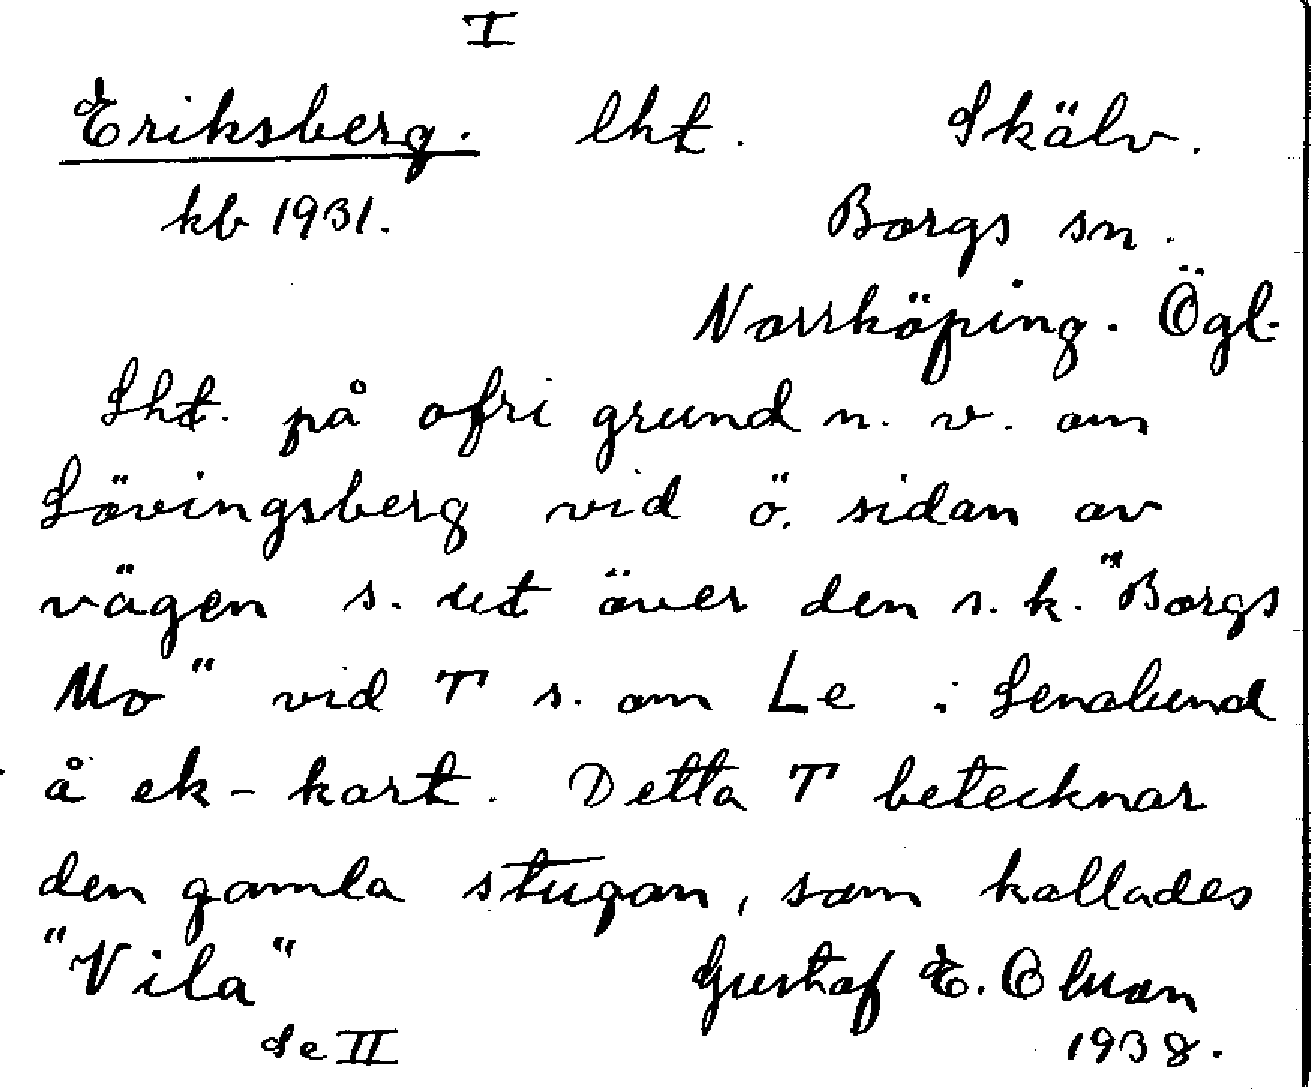 I
Eriksberg. lht. Skälv.
kb 1931. Borgs sn.
Norrköping. Ögl.
Lht. på ofri grund n. v. om
Lövingsberg vid ö. sidan av
vägen s. ut över den s. k. "Borgs
Mo" vid T s. om Le i Lenalund
å ek-kart. Detta T betecknar
den gamla stugan, som kallades
"Vila" Gustaf E. Olsson
Se II 1938.